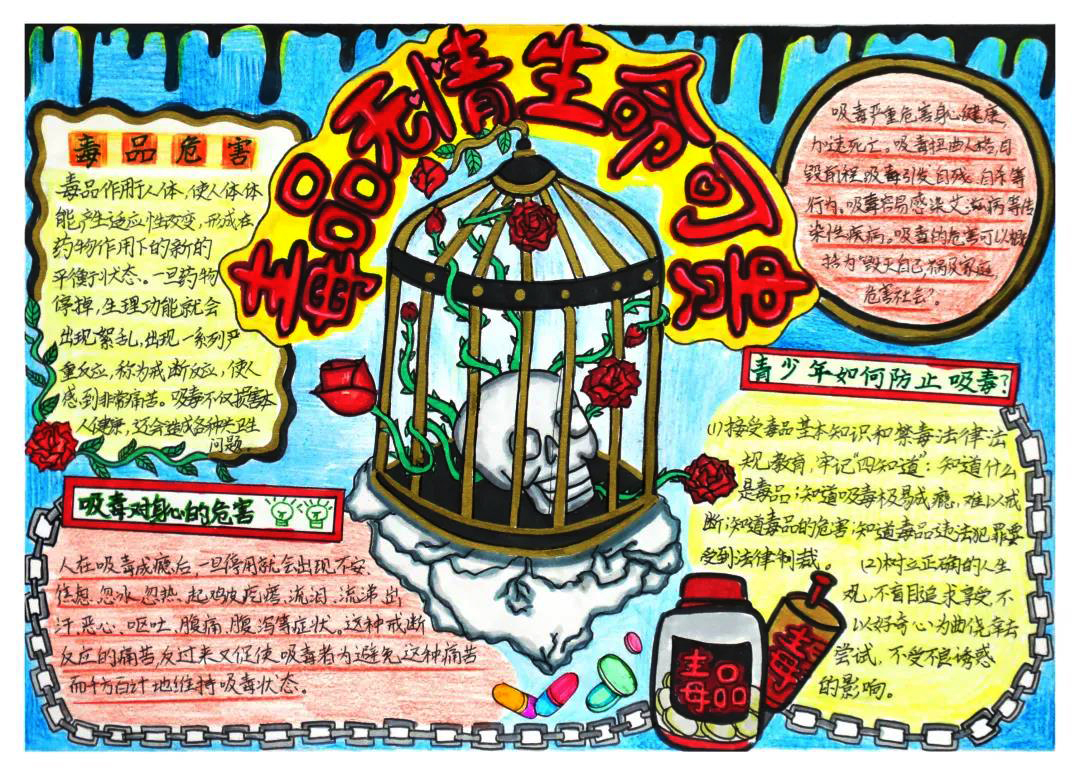 毒品无情生命可贵
毒品危害
毒品作用于人体,使人体体
能产生适应性改变,形成在
药物作用下的新的
平衡状态。一旦药物
停掉,生理功能就会
出现絮乱,出现一系列严
重反应,称为戒断反应,使人
感到非常痛苦。吸毒不仅损害本
人健康,还会造成各种
卫生
问题。
吸毒严重危害身心健康,
加速死亡。吸毒扭曲人格,自
毁前程,吸毒引发自残、自杀等
行为。吸毒容易感染艾滋病等传
染性疾病。吸毒的危害可以概
括为"毁灭自己,祸及家庭,
危害社会"。
吸毒对身心的危害
人在吸毒成瘾后,一旦停用就会出现不安
焦虑、忽冰忽热、起鸡皮疙瘩、流泪、流涕、出
汗、恶心、呕吐、腹痛、腹泻等症状。这种戒断
反应的痛苦,反过来又促使吸毒者为避免这种痛苦
而千方百计地维持吸毒状态。
青少年如何防止吸毒?
(1)接受毒品基本知识和禁毒法律法
规教育,牢记"四知道":知道什么
是毒品;知道吸毒极易成瘾,难以戒
断;知道毒品的危害;知道毒品违法犯罪要
受到法律制裁。 (2)树立正确的人生
观,不盲目追求享受,不
以好奇心为由侥幸去
尝试,不受不良诱惑
的影响。
毒品
毒